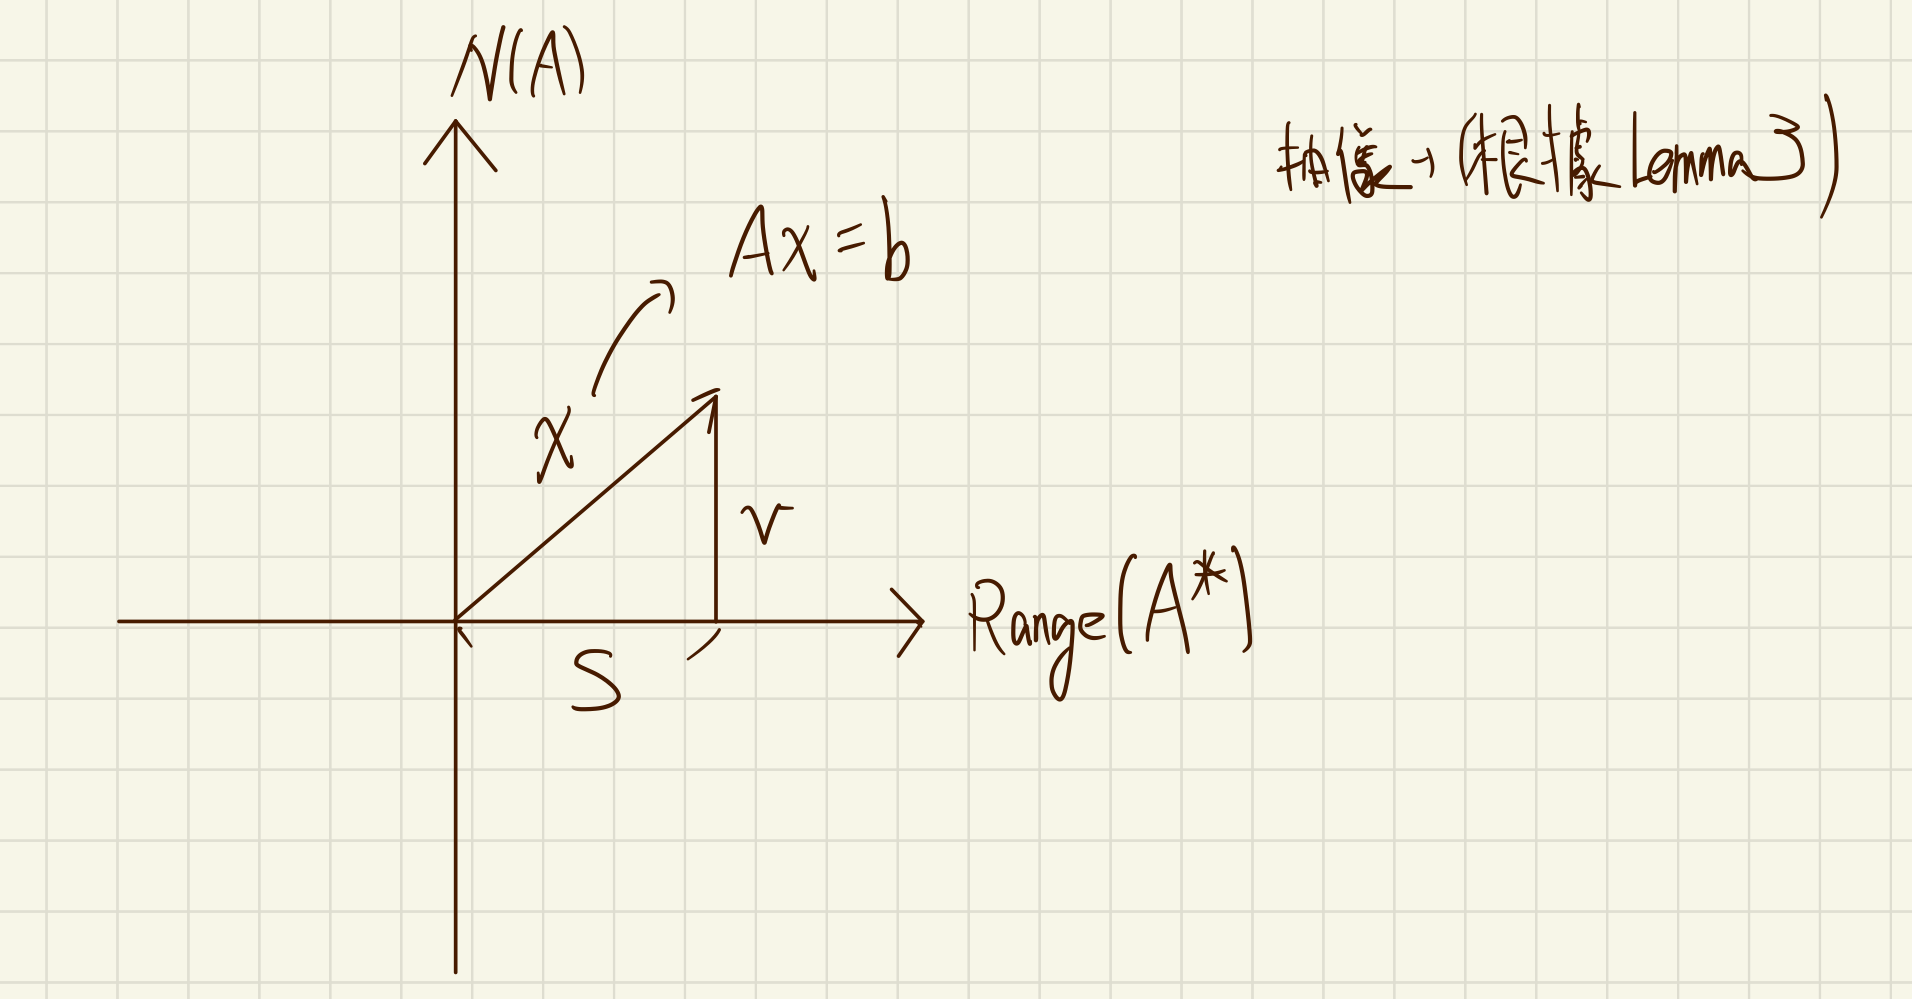 N(A)
(根據 Lemma 3)
Ax = b
x
v
Range(A*)
S